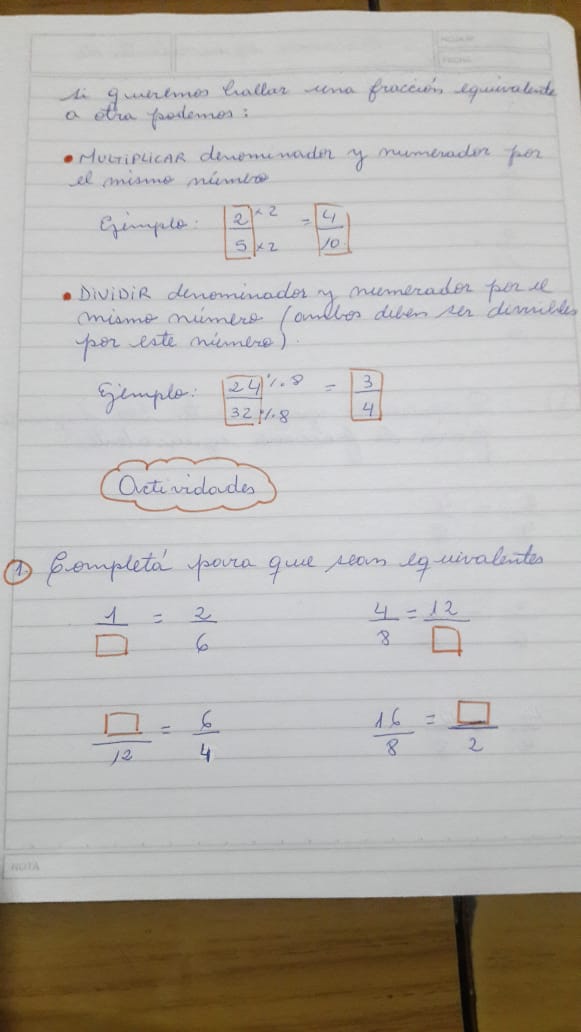 HOJA Nº
FECHA
si queremos hallar una fracción equivalente
a otra podemos:
• MULTIPLICAR denominador y numerador por
el mismo número
Ejemplo: 2/5 ×2 ×2 = 4/10
• DIVIDIR denominador y numerador por el
mismo número (ambos deben ser divisibles
por este número).
Ejemplo: 24/32 %8 %8 = 3/4
Actividades
1. Completá para que sean equivalentes
1/□ = 2/6 4/8 = 12/□
□/12 = 6/4 16/8 = □/2
NOTA